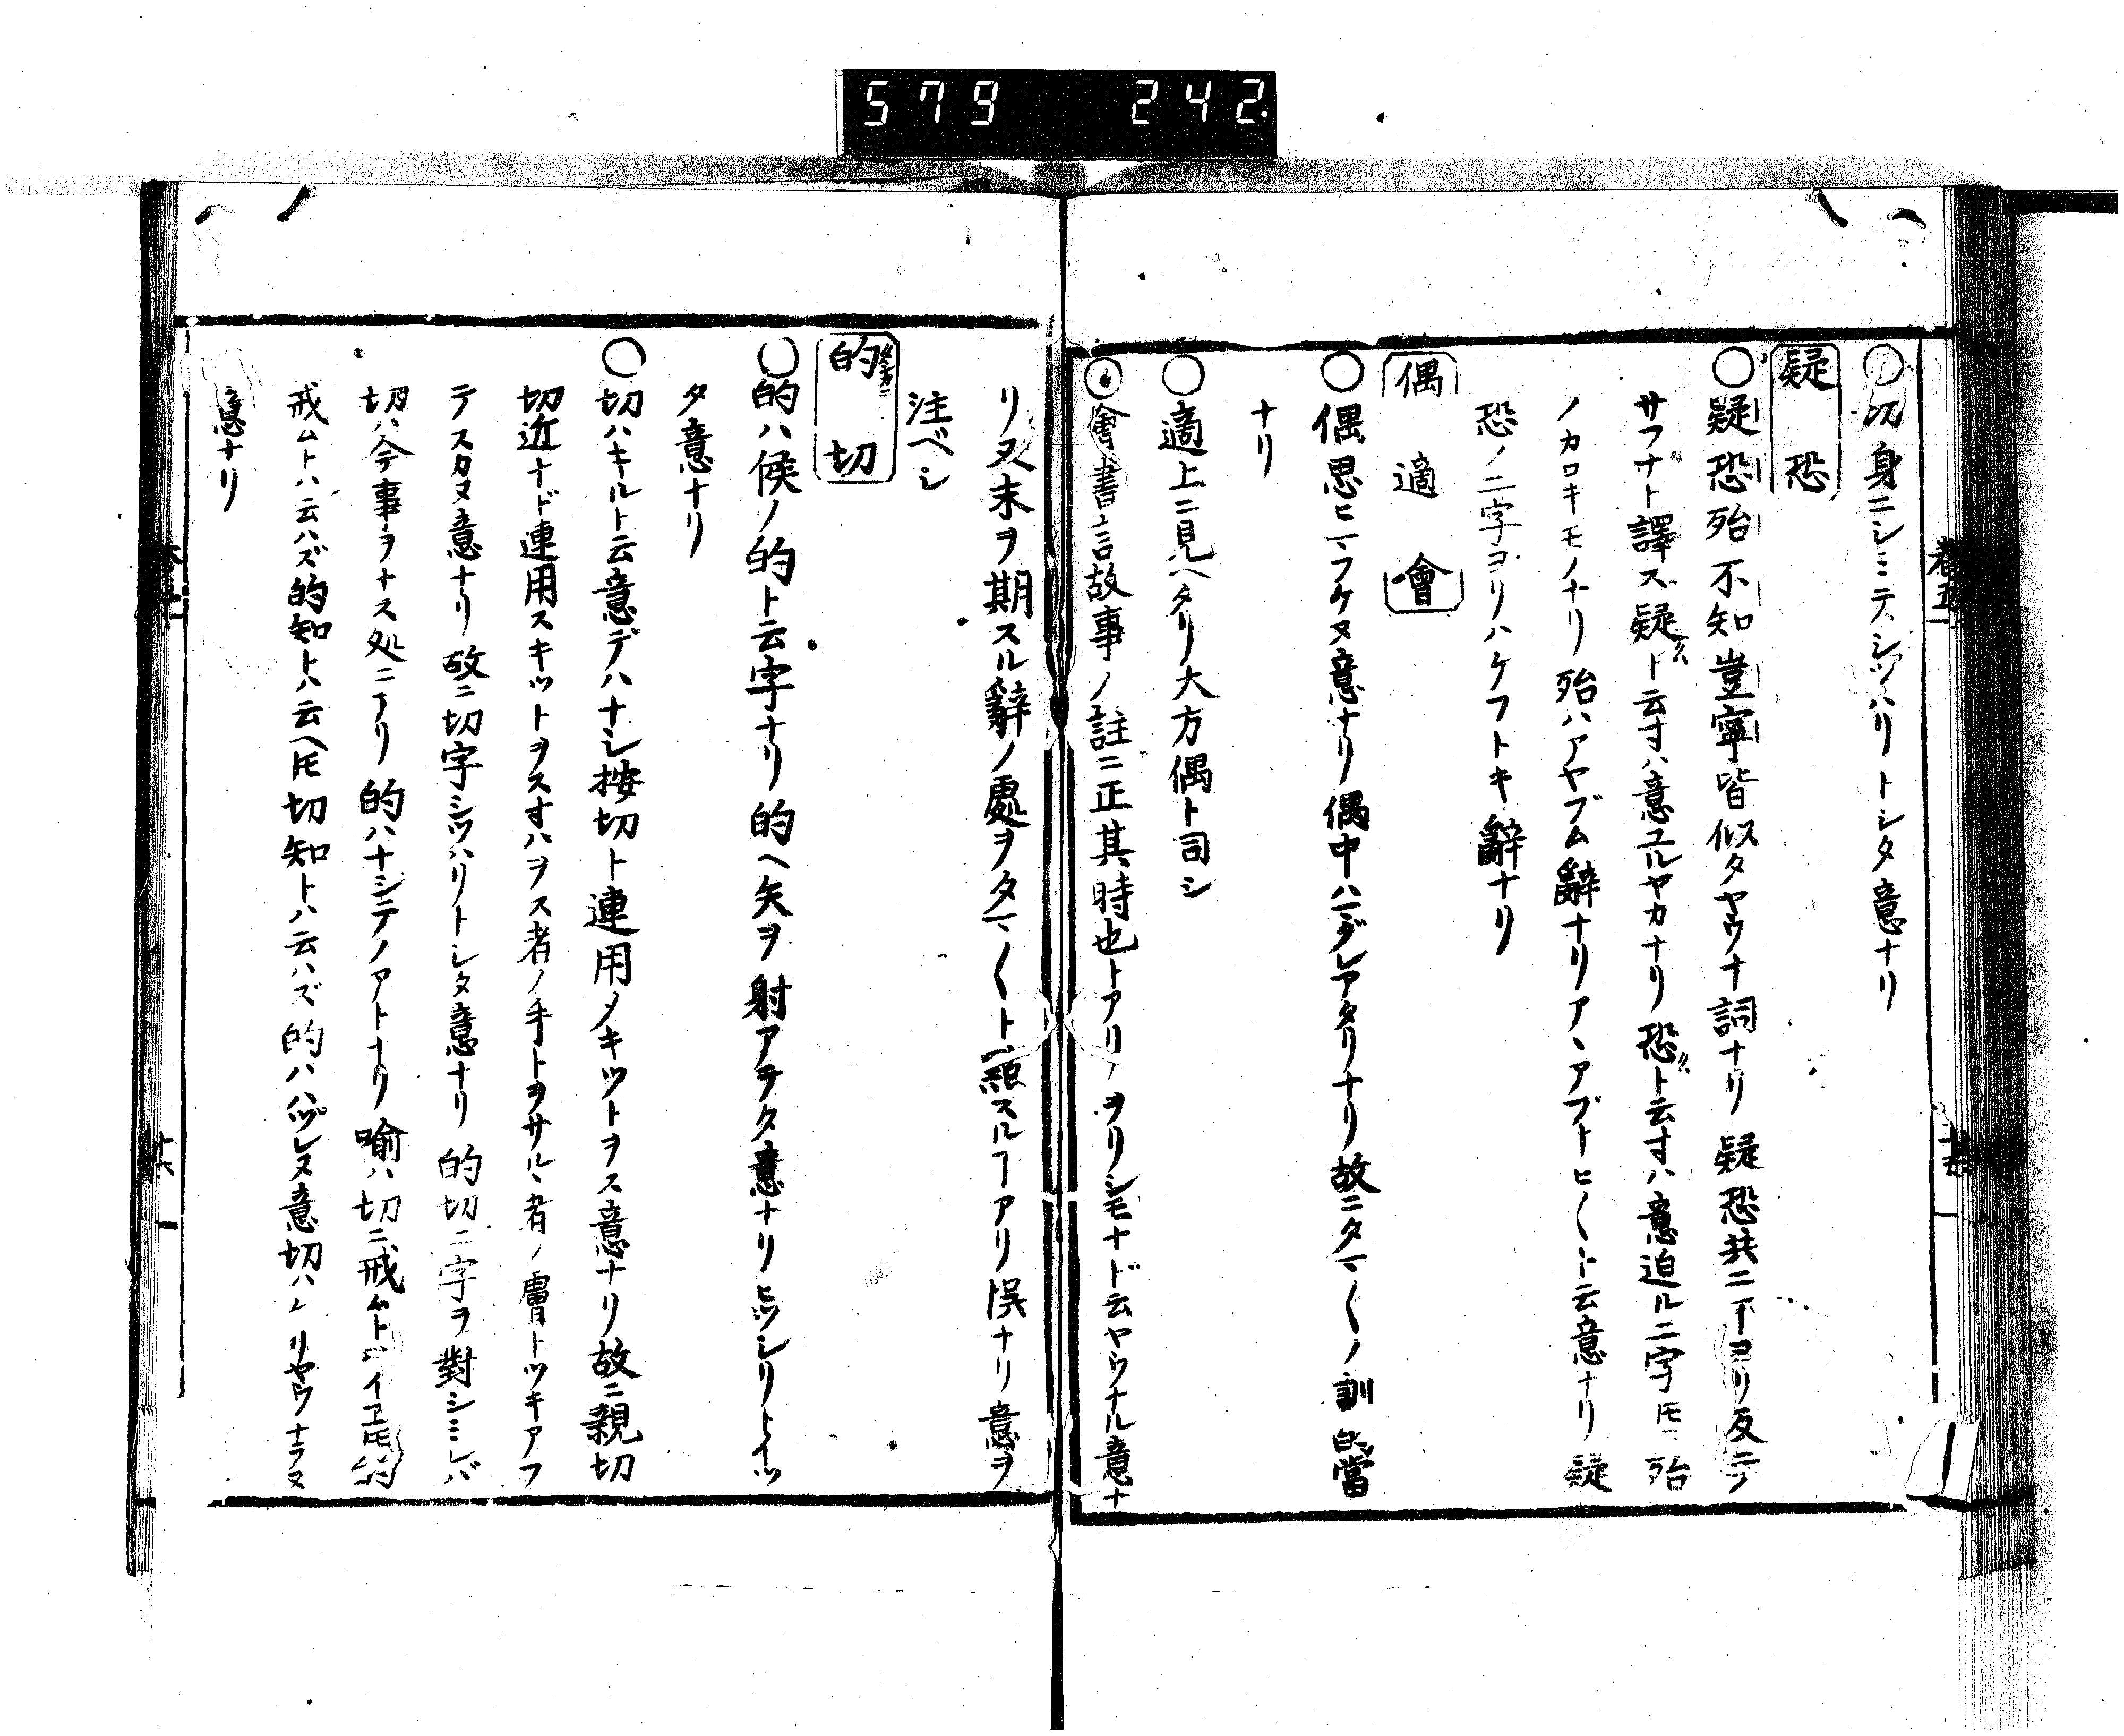 579 242.
○切身ニシミテシツハリトシタ意ナリ
疑恐
○疑恐殆不知豈寧皆似タヤウナ詞ナリ疑恐共ニ下ヨリ反ニテ
サフナト譯ス疑ト云寸ハ意ユルヤカナリ恐ト云寸ハ意迫ル二字𪜈ニ殆
ノカロキモノナリ殆ハアヤブム辭ナリアヽアブトヒ〱ト云意ナリ疑
恐ノ二字ヨリハケフトキ辭ナリ
偶適會
○偶思ヒマフケヌ意ナリ偶中ハマグレアタリナリ故ニタマ〱ノ訓的當
ナリ
○適上ニ見ヘタリ大方偶ト同シ
○會書言故事ノ註ニ正其時也トアリヲリシモナド云ヤウナル意ナ
リ又末ヲ期スル辭ノ處ヲタマ〱ト點スルヿアリ誤ナリ意ヲ
注ベシ
的切
○的ハ候ノ的ト云字ナリ的ヘ矢ヲ射アテタ意ナリヒツシリトイツ
タ意ナリ
○切ハキルト云意デハナシ按切ト連用ノキツトヲス意ナリ故ニ親切
切近ナド連用スキツトヲス寸ハヲス者ノ手トヲサルヽ者ノ膚トツキアフ
テスカヌ意ナリ故ニ切字シツハリトシタ意ナリ的切二字ヲ對シミレバ
切ハ今事ヲナス処ニアリ的ハナシテノアトナリ喩ハ切ニ戒ムトハイヱ𪜈的
戒ムトハ云ハズ的知トハ云ヘ𪜈切知トハ云ハズ的ハハヅレヌ意切ハノリヤウナラヌ
意ナリ